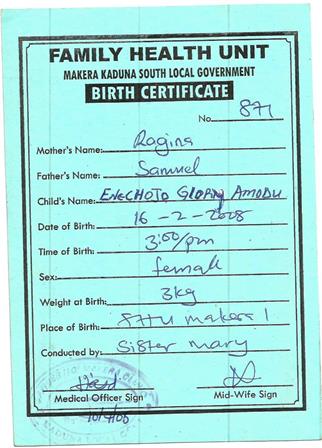 FAMILY HEALTH UNIT
MAKERA KADUNA SOUTH LOCAL GOVERNMENT
BIRTH CERTIFICATE
No. 871
Mother's Name: Ragina
Father's Name: Samuel
Child's Name: ENECHOJO GLORY AMODU
Date of Birth: 16-2-2008
Time of Birth: 3:00/pm
Sex: female
Weight at Birth: 3kg
Place of Birth: makera 1
Conducted by: Sister mary
Medical Officer Sign
Mid-Wife Sign